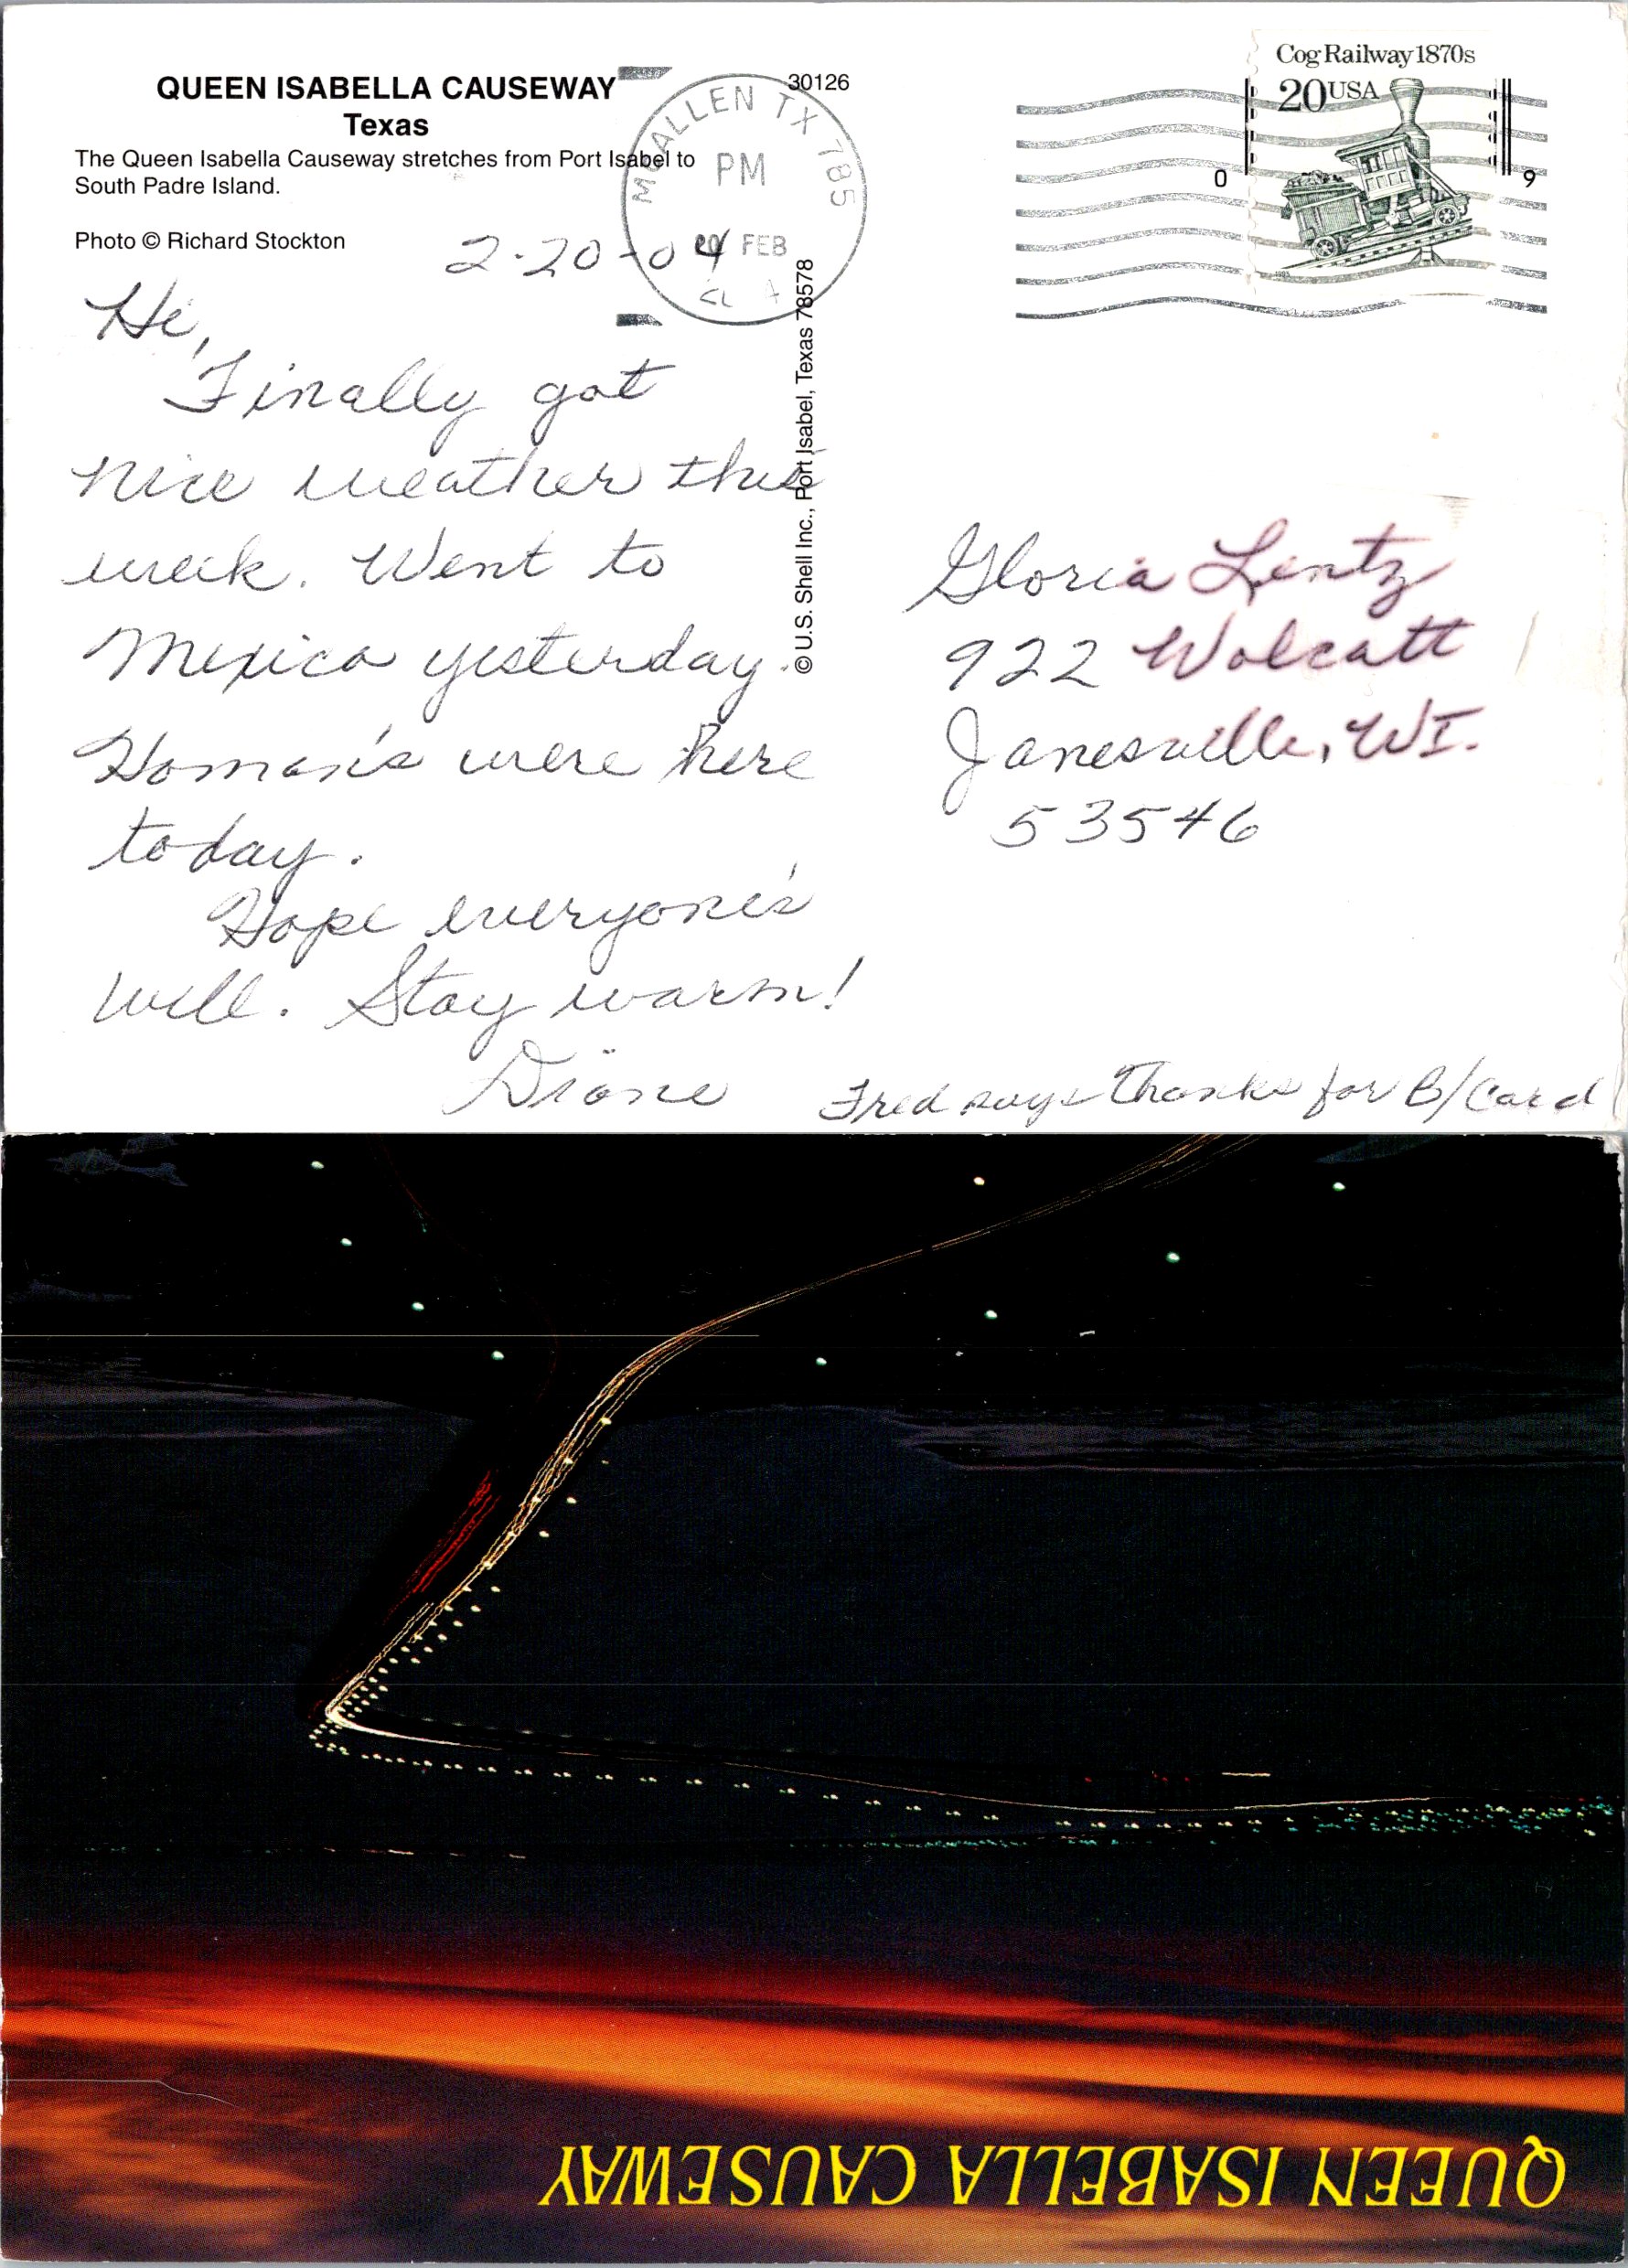 QUEEN ISABELLA CAUSEWAY
Texas
The Queen Isabella Causeway stretches from Port Isabel to
South Padre Island.
Photo © Richard Stockton
30126
MCALLEN TX 785
PM
20 FEB
Cog Railway 1870s
20 USA
0 9
2-20-04
Hi,
Finally got
nice weather this
week. Went to
Mexico yesterday.
Homan's were here
today.
Hope everyone's
well. Stay warm!
Diane
© U.S. Shell Inc., Port Isabel, Texas 78578
Gloria Lentz
922 Wolcott
Janesville, WI.
53546
Fred says Thanks for B/Card
QUEEN ISABELLA CAUSEWAY